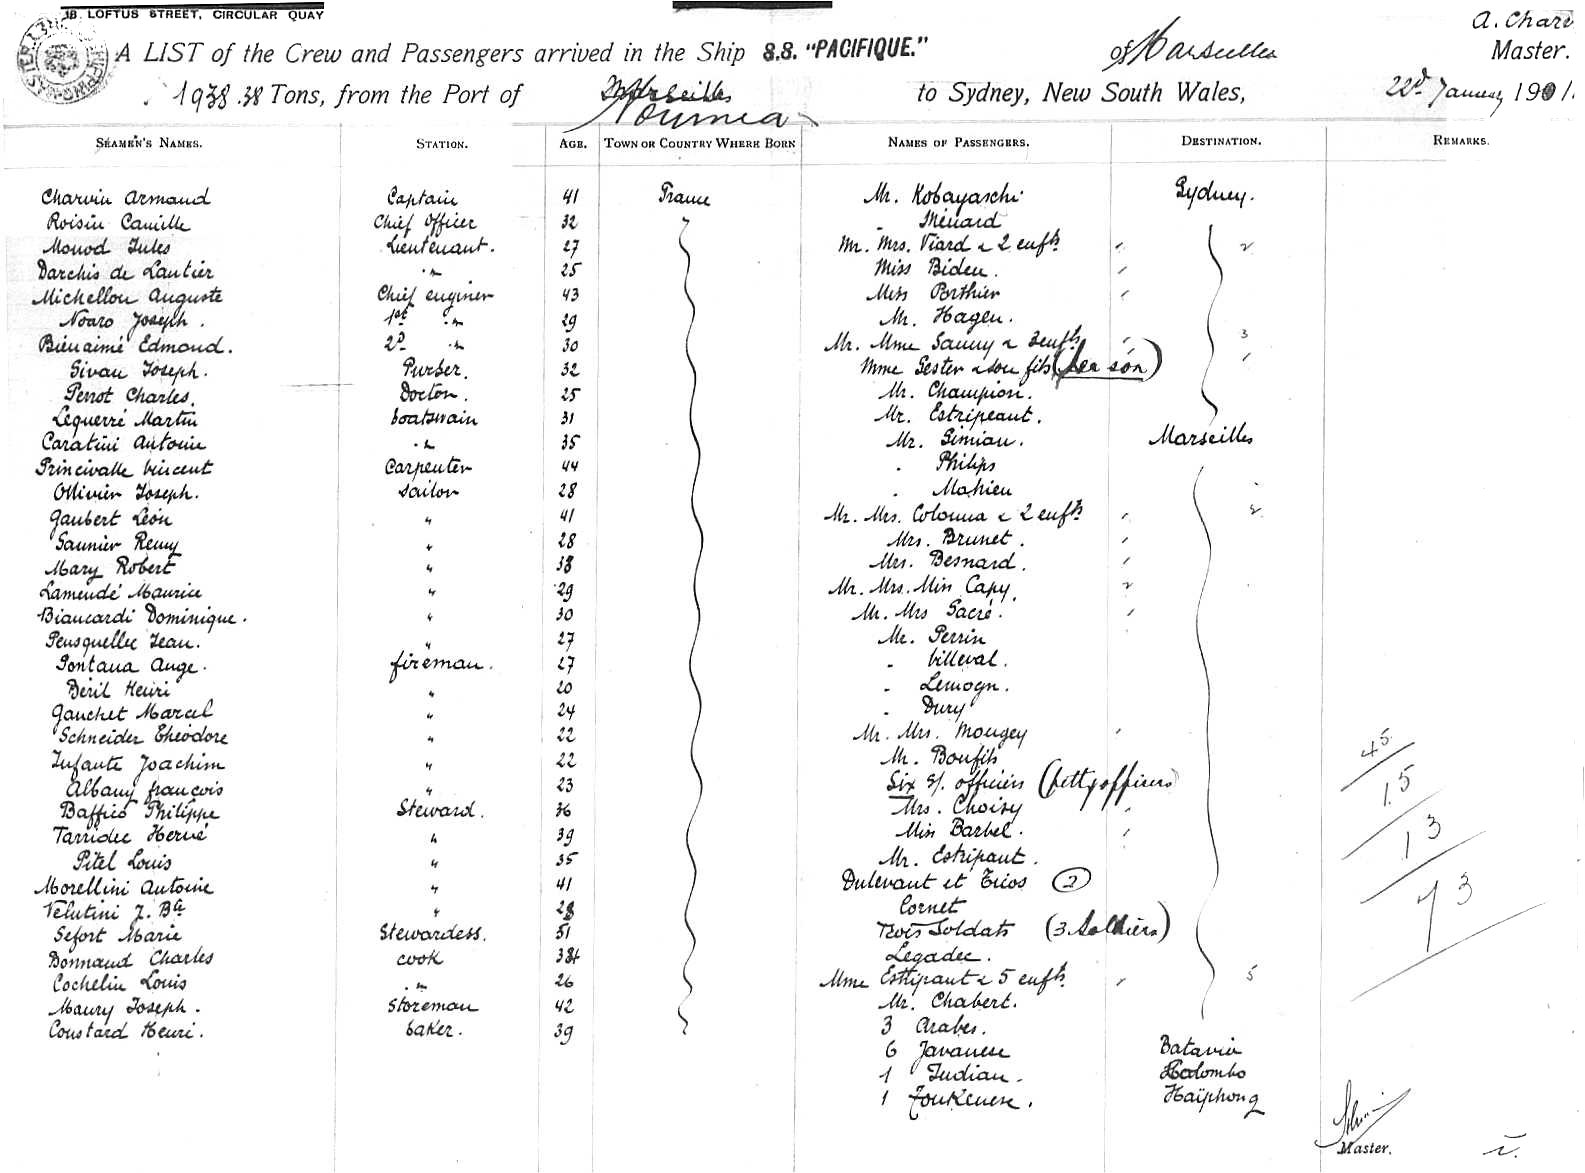 18. LOFTUS STREET, CIRCULAR QUAY
A. Char
A LIST of the Crew and Passengers arrived in the Ship S.S. "PACIFIQUE." of Marseilles Master.
1938.38 Tons, from the Port of Marseilles Noumea to Sydney, New South Wales, 22d January 1901.
SEAMEN'S NAMES. STATION. AGE. TOWN OR COUNTRY WHERE BORN NAMES OF PASSENGERS. DESTINATION. REMARKS.
Charvin Armand Captain 41 France Mr. Kobayaschi Sydney.
Roisin Camille Chief Officer 32 " Ménard
Monod Jules Lieutenant. 27 Mr. Mrs. Viard & 2 enfts " 2
Darchis de Lautier " 25 Miss Biden. "
Michellon Auguste Chief enginer 43 Miss Porthier "
Noaro Joseph. 1st " 29 Mr. Hagen.
Bienaimé Edmond. 2d " 30 Mr. Mme Saury & 3 enfts " 3
Sivan Joseph. Purser. 32 Mme Gester & son fils (her son) "
Perrot Charles. Doctor. 25 Mr. Champion.
Lequerré Martin boatswain 31 Mr. Estripeaut.
Caratini Antoine " 35 Mr. Simian. Marseilles
Princivalle Vincent Carpenter 44 " Philips
Ollivier Joseph. sailor 28 " Mahieu
Gaubert Léon " 41 Mr. Mrs. Colonna & 2 enfts " 2
Saunier Remy " 28 Mrs. Brunet. "
Mary Robert " 38 Mrs. Besnard. "
Lamendé Maurice " 29 Mr. Mrs. Miss Capy. 2
Biancardi Dominique. " 30 Mr. Mrs Sacré. "
Pensquellec Jean. " 27 Mr. Perrin
Fontana Ange. fireman. 27 " Villeval.
Béril Henri " 20 " Lemogn.
Gauchet Marcel " 24 " Dury
Schneider Théodore " 22 Mr. Mrs. Mougey "
Infante Joachim " 22 Mr. Boufils 45
Albany françois " 23 Six s/. officiers (petty officers) 15
Baffico Philippe Steward. 36 Mrs. Choisy "
Tarridec Hervé " 39 Miss Barbel. " 13
Pitel Louis " 35 Mr. Estripaut.
Morellini Antoine " 41 Dulevant et Tricos (2) 73
Velutini J. Bte " 28 Cornet
Sefort Marie Stewardess. 51 Trois Soldats (3. Soldiers)
Bonnaud Charles cook 34 Legadec.
Cochelin Louis " 26 Mme Estripaut & 5 enfts " 5
Maury Joseph. Storeman 42 Mr. Chabert.
Coustard Henri. baker. 39 3 Arabes.
6 Javanese Batavia
1 Indian. Colombo
1 Tonkenese. Haïphong
Master.